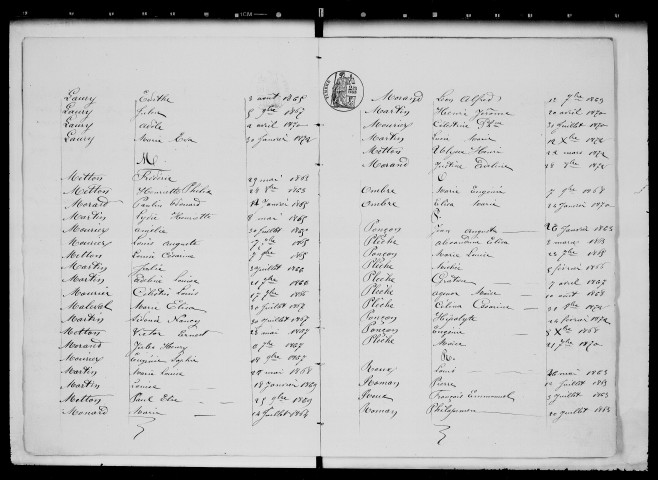 Laury Berthe 3 août 1865
Laury Jules 5 9bre 1867
Laury Adèle 2 avril 1870
Laury Marie Eva 30 janvier 1872
M.
Metton Frédéric 29 mai 1863
Metton Henriette Philie 28 8bre 1863
Morard Paulin Edouard 14 Janvier 1865
Martin Lydie Henriette 8 mai 1865
Mourier Angelie 30 juillet 1865
Mourier Louis Auguste 1865
Metton Louis Césarine 7 1865
Martin Julie juillet 1866
Martin Louise 1866
Mourier Célestin Louis 17 1866
Malaval Marie Eliza 20 juillet 1867
Martin Nancy 30 juillet 1867
Metton Victor Ernest mai 1867
Morand Jules Henry 1867
Mourier Eugénie Sophie 18 1867
Martin Marie Louise 22 mai 1868
Martin Louise 18 Janvier 1869
Metton Paul Elie 25 9bre 1869
Monard Marie 14 Juillet 1864
Morard Léon Alfred 12 7bre 1869
Martin Henri Jérôme 20 avril 1870
Mourier Célestine 30 juillet 1870
Martin Marie 12 Xbre 1872
Metton Ulysse Henri 22 mai 1872
Morand Justine Eveline 28 8bre 1872
O
Ombre Marie Eugénie 7 9bre 1868
Ombre Eliza Marie 24 Janvier 1870
P.
Ponçon Jean Auguste 26 Janvier 1863
Ploche Alexandrine Eliza 2 mars 1865
Ponçon Marie Louise 25 7bre 1865
Ploche 5 février 1866
Ploche Gratien 7 avril 1867
Ploche 10 août 1868
Ploche Célina Césarine
Ponçon Hippolyte 24 février 1872
Ponçon Eugénie 8 Xbre 1868
Ploche Moïse 21 7bre 1870
R.
Roux Louis 26 mai 1863
Roman Pierre 12 Juillet 1863
Roux François Emmanuel 5 Juillet 1863
Roman Philopimen 20 juillet 1863